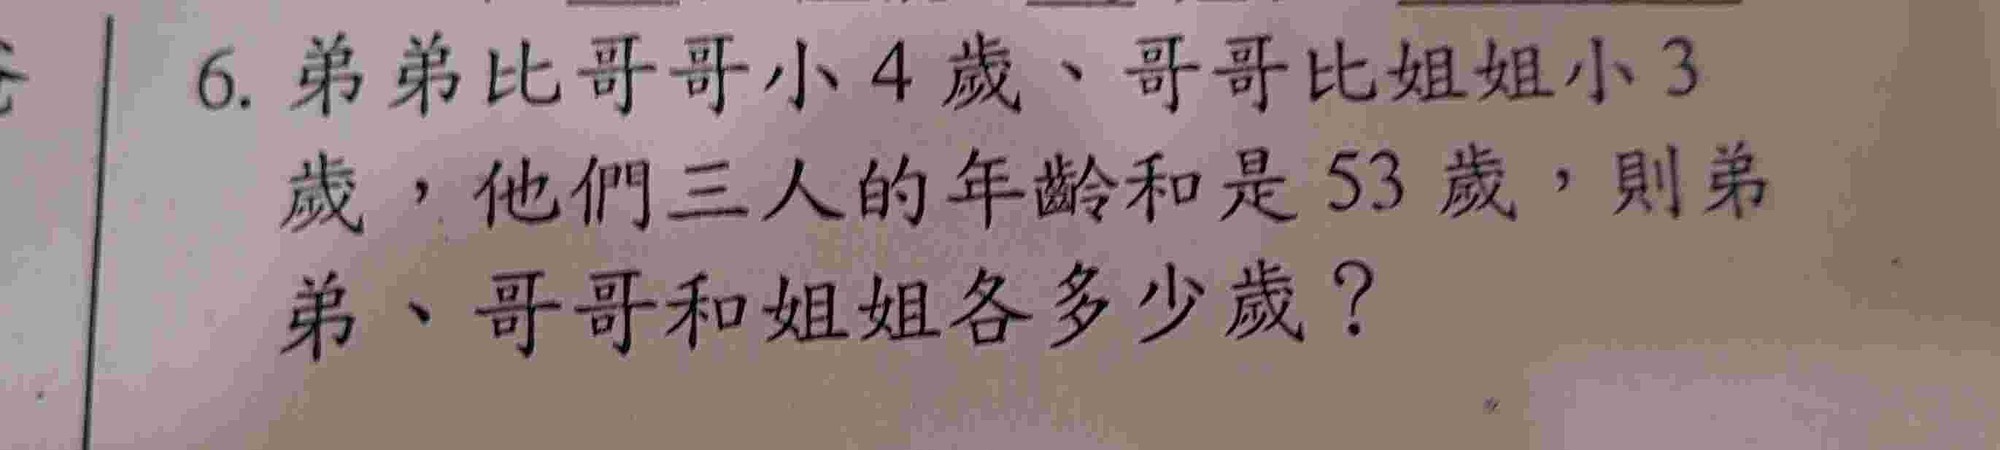 6. 弟弟比哥哥小4歲、哥哥比姐姐小3
歲，他們三人的年齡和是53歲，則弟
弟、哥哥和姐姐各多少歲？